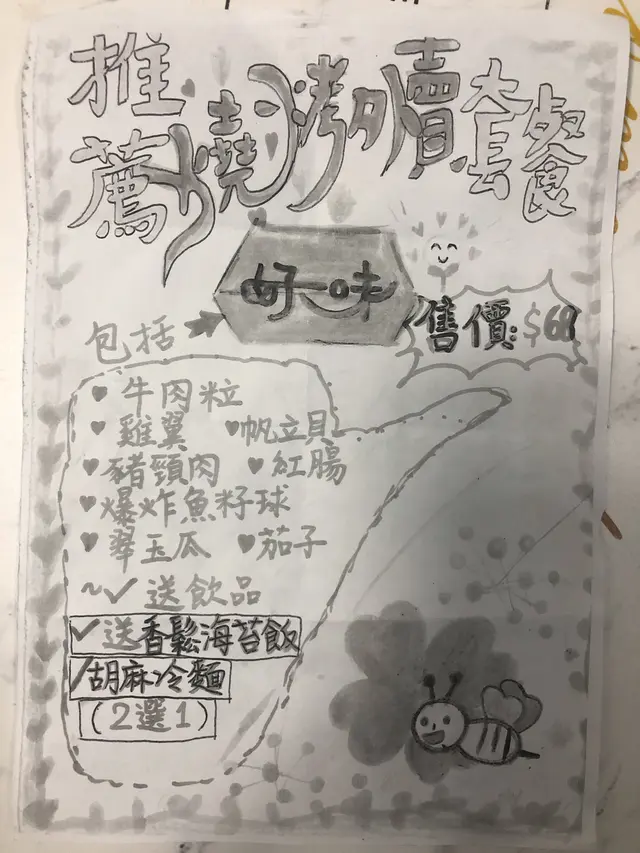 推薦燒烤外賣套餐
好味
售價:$68
包括
♥牛肉粒
♥雞翼 ♥帆立貝
♥豬頸肉 ♥紅腸
♥爆炸魚籽球
♥翠玉瓜 ♥茄子
~✓送飲品
✓送香鬆海苔飯
/胡麻冷麵
(2選1)